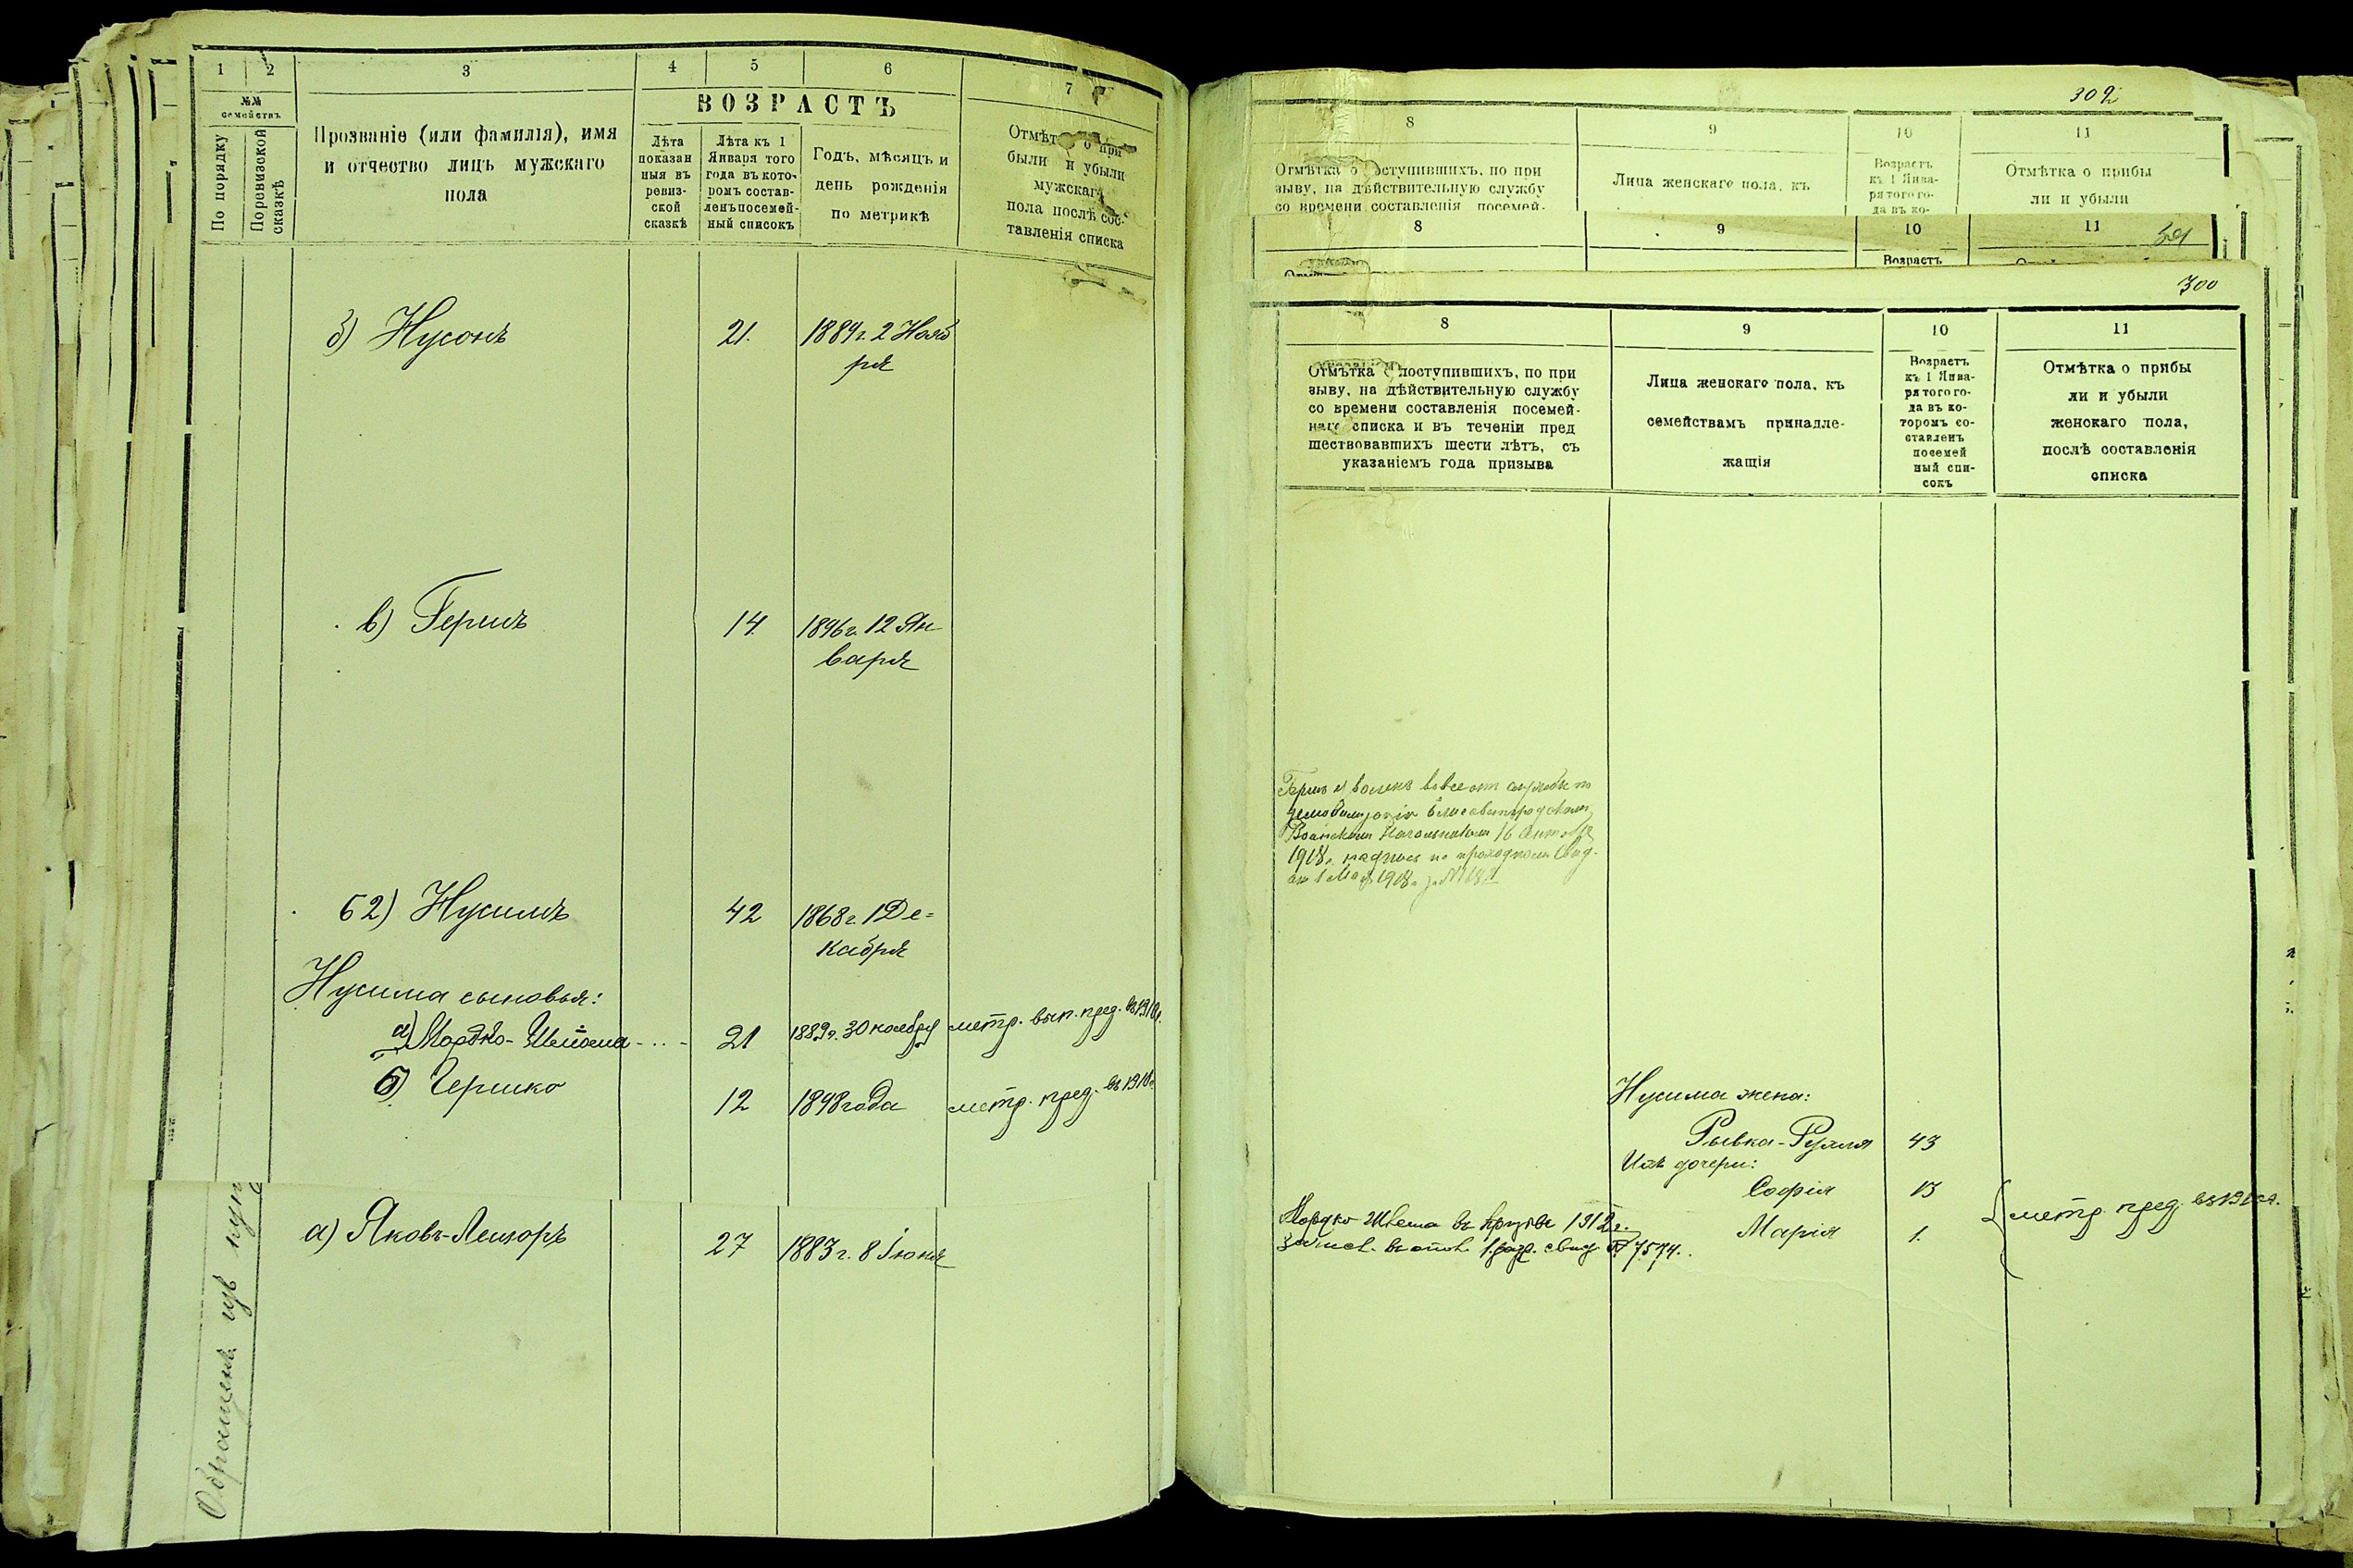 1 2 3 4 5 6 7
№№ семействъ
По порядку
По ревизской сказкѣ
Прозваніе (или фамилія), имя
и отчество лицъ мужскаго
пола
ВОЗРАСТЪ
Лѣта
показан
ныя въ
ревиз-
ской
сказкѣ
Лѣта къ 1
Января того
года въ кото-
ромъ состав-
ленъ посемей-
ный списокъ
Годъ, мѣсяцъ и
день рожденія
по метрикѣ
были и убыли
мужскаго
пола послѣ сос-
тавленія списка
б) Нусонъ 21. 1889 г. 2 Нояб
ря
в) Гершъ 14. 1896 г. 12 Ян
варя
б2) Нусимъ 42 1868 г. 1 Де=
кабря
Нусима сыновья:
а) Мордко-Шлёма 21 1889 г. 30 ноября метр. вып. пред. въ 1910 г.
б) Гершко 12 1898 года метр. пред. въ 1910 г.
а) Яковъ-Лейзоръ 27 1883 г. 8 Іюня
Обращенъ изъ куп
302
8 9 10 11
Отмѣтка о поступившихъ, по при
зыву, на дѣйствительную службу
со времени составленія посемей-
Лица женскаго пола, къ
Возрастъ
къ 1 Янва-
ря того го-
да въ ко-
Отмѣтка о прибы
ли и убыли
8 9 10 11
Возрастъ
300
8 9 10 11
Отмѣтка о поступившихъ, по при
зыву, на дѣйствительную службу
со времени составленія посемей-
наго списка и въ теченіи пред
шествовавшихъ шести лѣтъ, съ
указаніемъ года призыва
Лица женскаго пола, къ
семействамъ принадле-
жащія
Возрастъ
къ 1 Янва-
ря того го-
да въ ко-
торомъ со-
ставленъ
посемей
ный спи-
сокъ
Отмѣтка о прибы
ли и убыли
женскаго пола,
послѣ составленія
списка
Гершъ уволенъ вовсе отъ службы по
демобилизаціи Елисаветградскимъ
Воинскимъ Начальникомъ 16
1918 г. надпись на проходномъ свид.
1918 г.
Нусима жена:
Рывка-Рузля 43
Ихъ дочери:
Софія 13
Марія 1.
метр. пред. въ 1910 г.
Мордко Шлема въ призывѣ 1912 г.
зачисл. въ ополч. 1 разр. свид. № 7574.